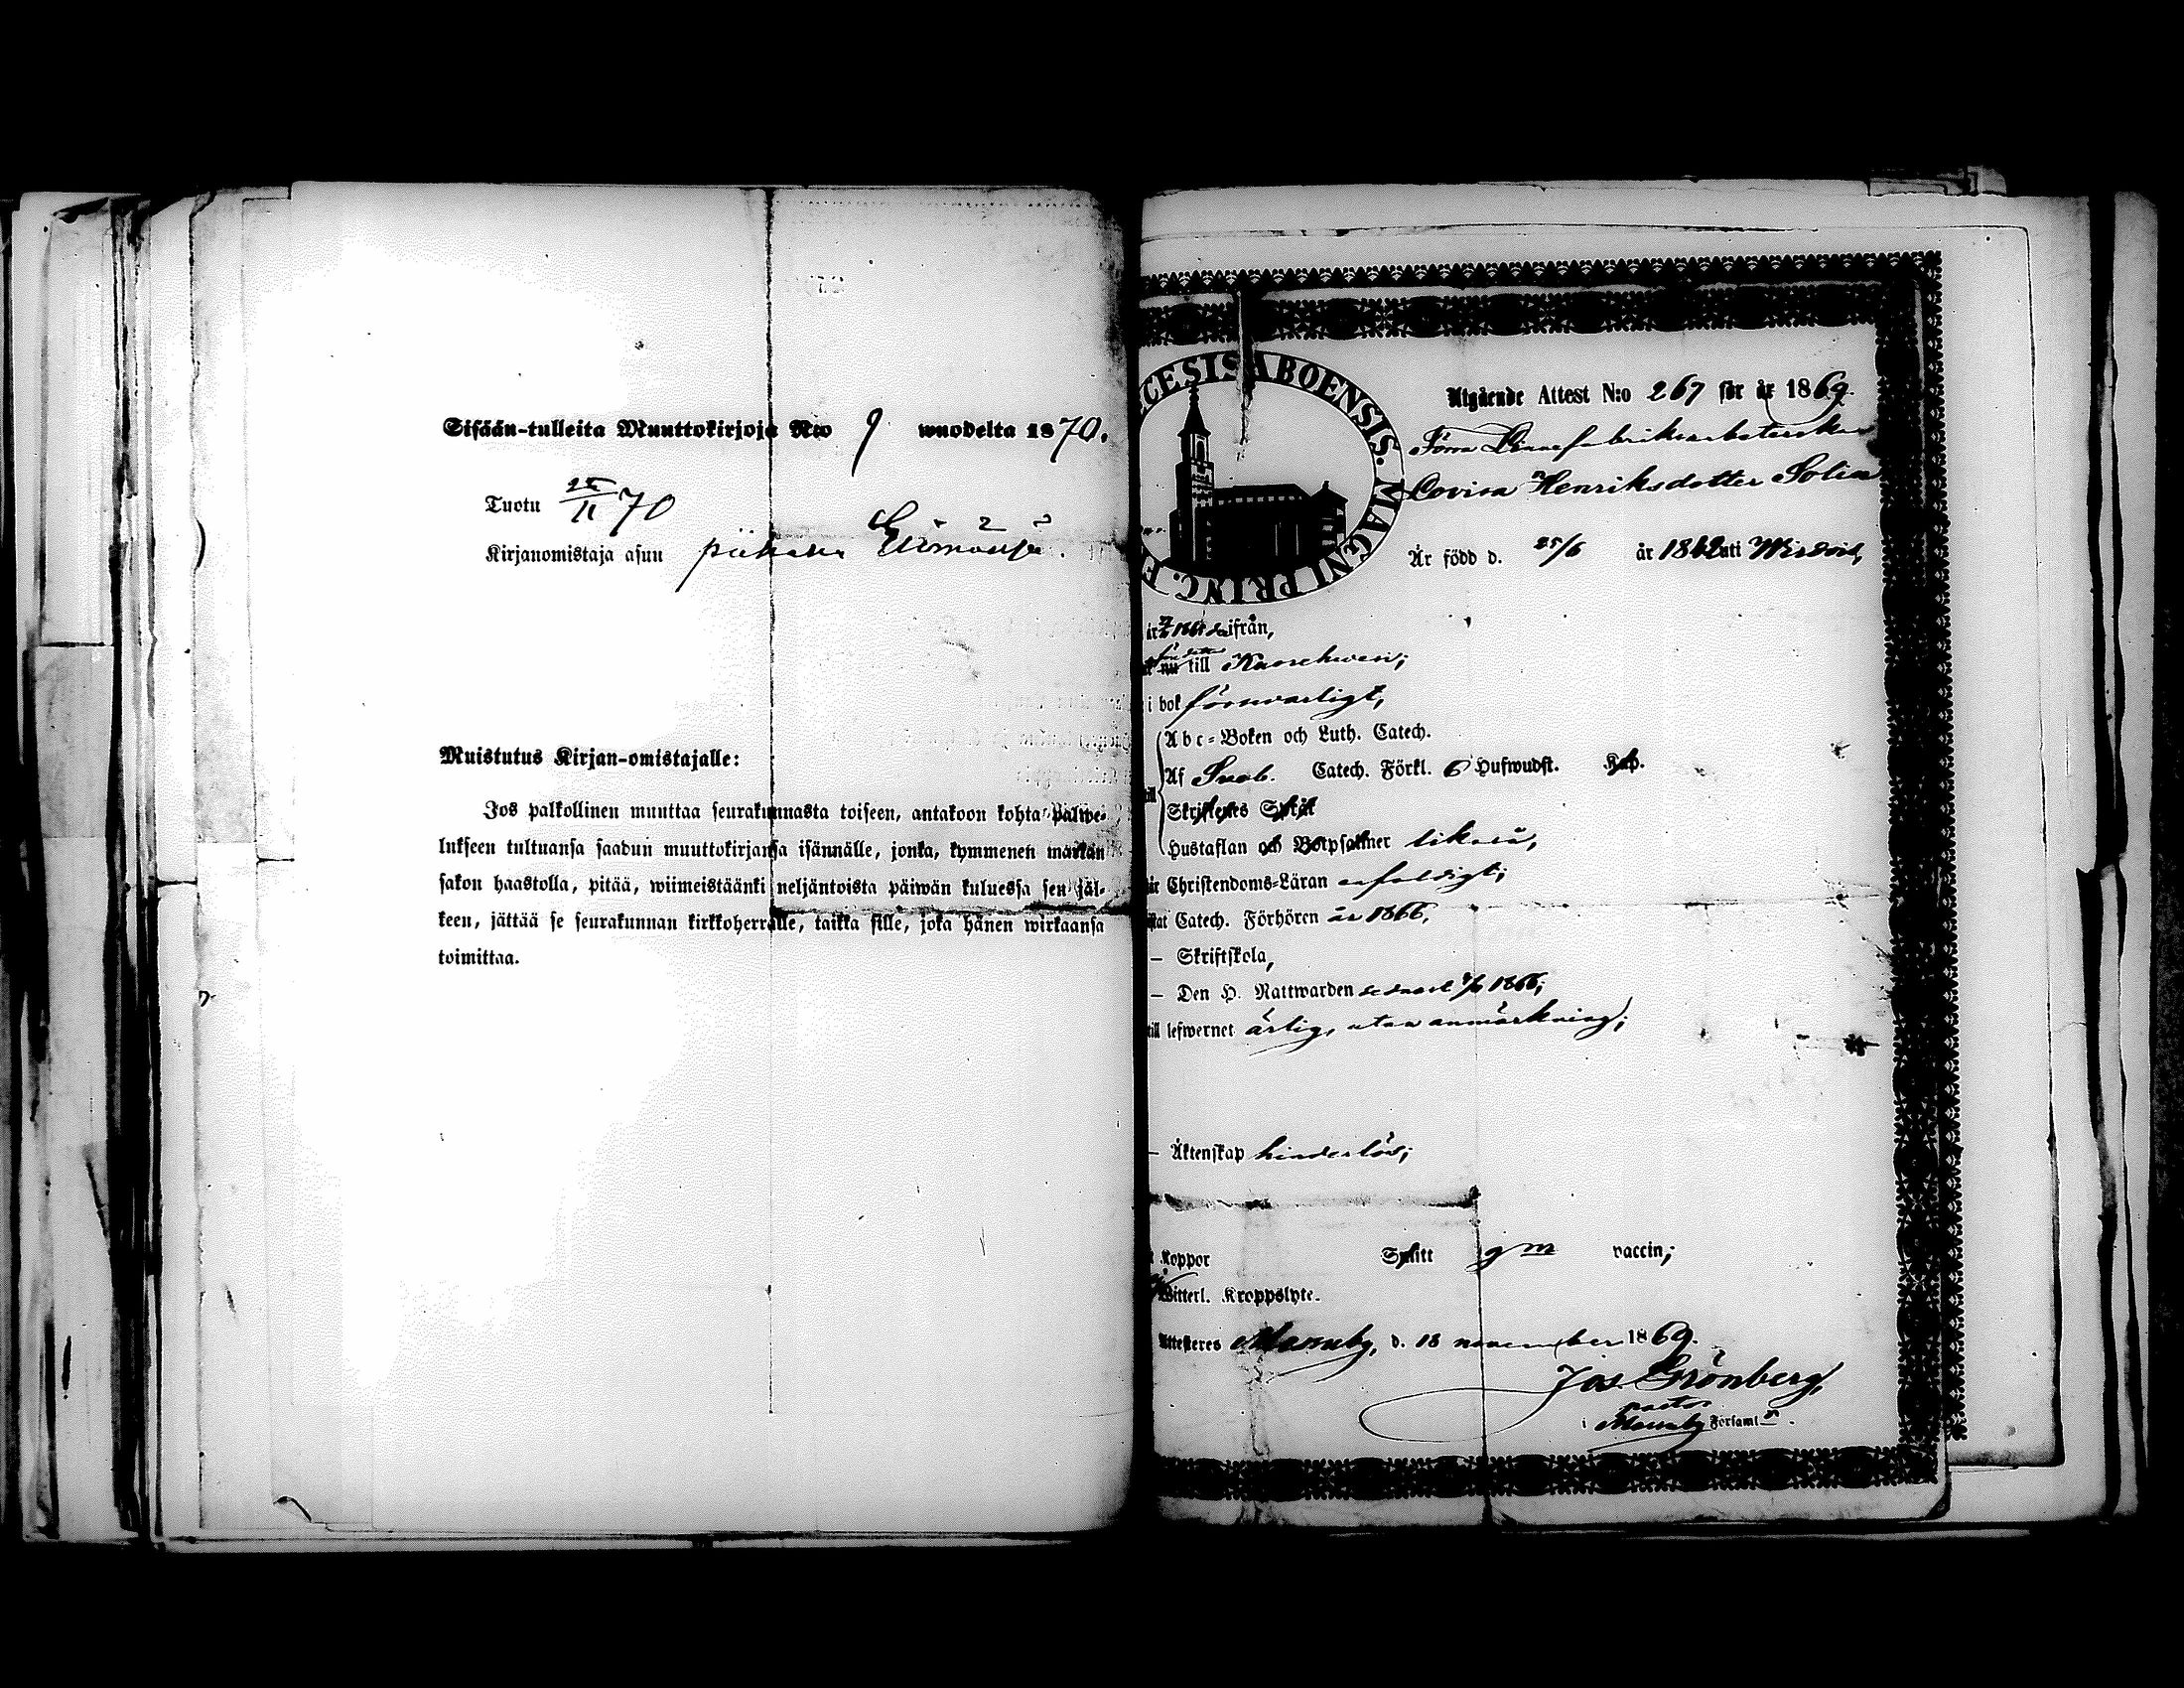 Sisään-tulleita Muuttokirjoja N:o 9 wuodelta 1870.
Tuotu 25/II 70
Kirjanomistaja asuu piikana
Muistutus Kirjan-omistajalle:
Jos palkollinen muuttaa seurakunnasta toiseen, antakoon kohta palwe-
lukseen tultuansa saadun muuttokirjansa isännälle, jonka, kymmenen markan
sakon haastolla, pitää, wiimeistäänki neljäntoista päiwän kuluessa sen jäl-
keen, jättää se seurakunnan kirkkoherralle, taikka sille, joka hänen wirkaansa
toimittaa.
CESIS ABOENSIS. MAGNI PRINC. F
Utgående Attest N:o 267 för år 1869.
Förra
Lovisa Henriksdotter Solin
Är född d. 25/6 år 1842 uti
ifrån,
nu till
i bok försvarligt,
Abc-Boken och Luth. Catech.
Af Sveb. Catech. Förkl. 6 Hufwudst. Kap.
Skriftenes Språk
Hustaflan och Botpsalmer likaså,
Christendoms-Läran enfaldigt;
Catech. Förhören år 1866,
— Skriftskola,
— Den H. Nattwarden senast 1866;
till lefwernet ärlig, utan anmärkning;
— Äktenskap hinderlös;
Koppor Smitt gm vaccin;
Witterl. Kroppslyte.
Attesteres Masuby, d. 18 november 1869.
Jos. Grönberg,
pastor
i Masuby Församl.